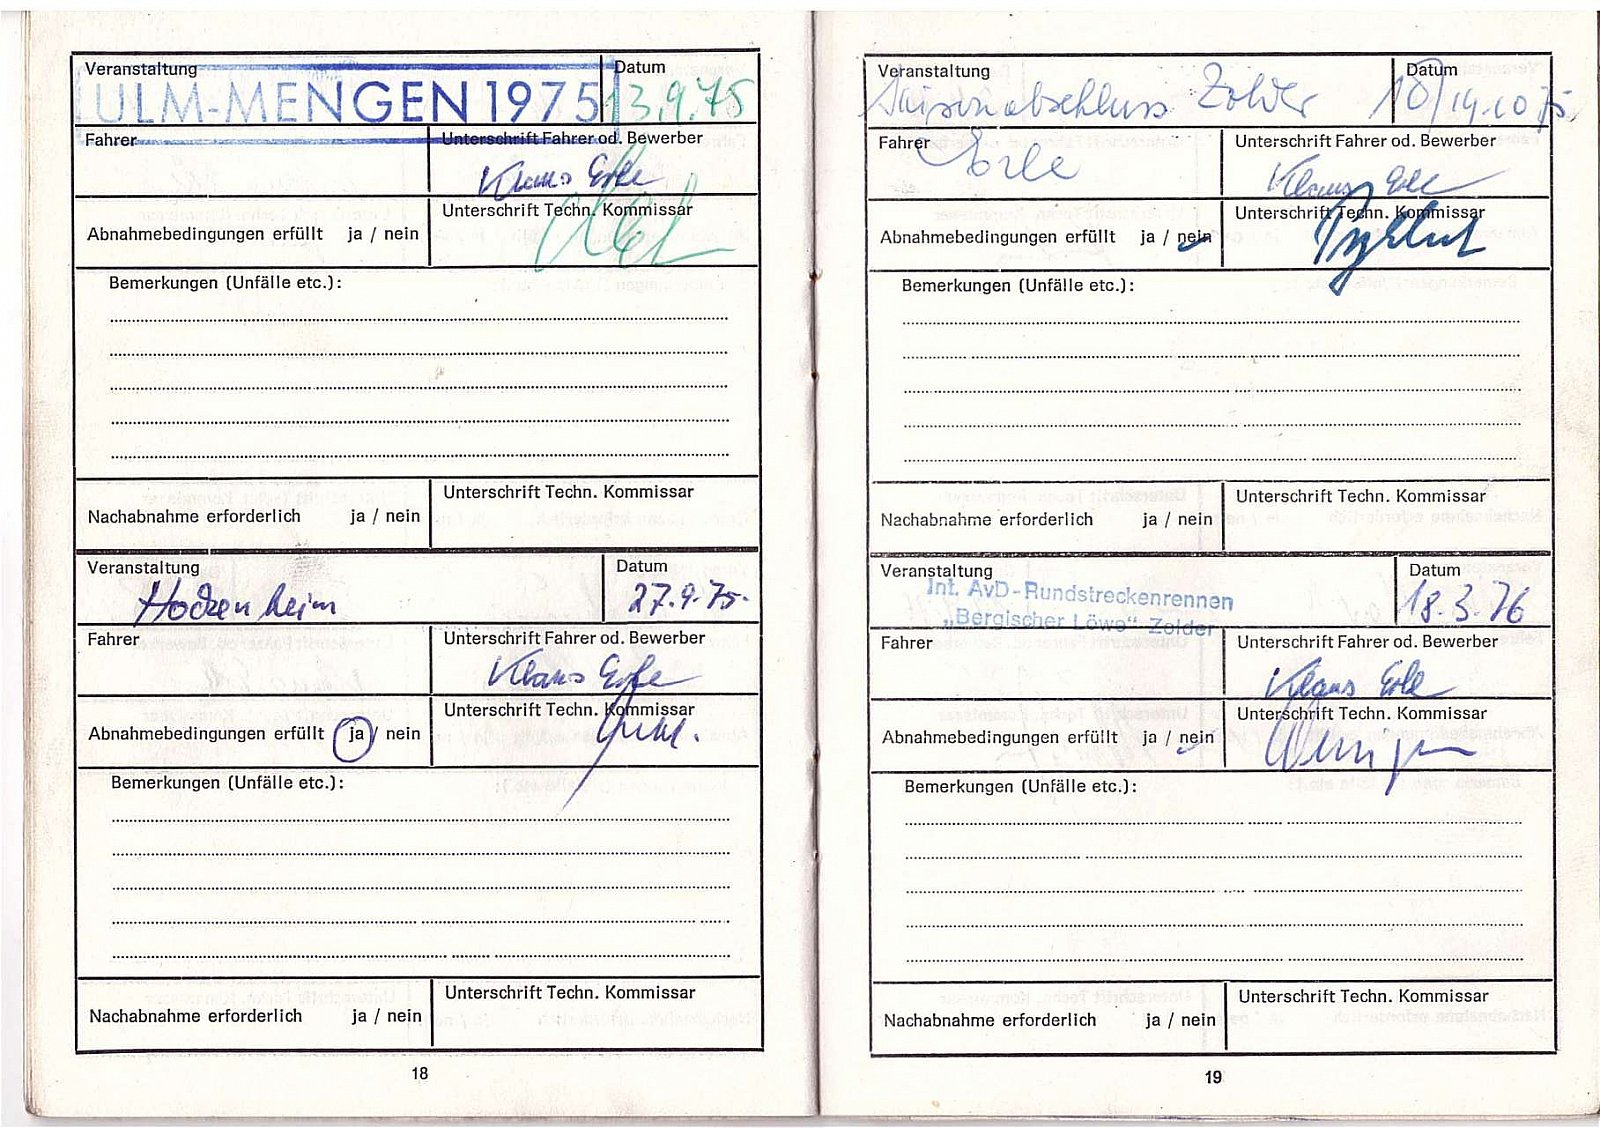 Veranstaltung
Datum
ULM-MENGEN 1975
13.9.75
Fahrer
Unterschrift Fahrer od. Bewerber
Klaus Erle
Unterschrift Techn. Kommissar
Abnahmebedingungen erfüllt ja / nein
Bemerkungen (Unfälle etc.):
Unterschrift Techn. Kommissar
Nachabnahme erforderlich ja / nein
Veranstaltung
Datum
Hockenheim
27.9.75.
Fahrer
Unterschrift Fahrer od. Bewerber
Klaus Erle
Unterschrift Techn. Kommissar
Abnahmebedingungen erfüllt ja / nein
Bemerkungen (Unfälle etc.):
Unterschrift Techn. Kommissar
Nachabnahme erforderlich ja / nein
18
Veranstaltung
Datum
Saisonabschluss Zolder
18/19.10.75.
Fahrer
Erle
Unterschrift Fahrer od. Bewerber
Klaus Erle
Unterschrift Techn. Kommissar
Abnahmebedingungen erfüllt ja / nein
Bemerkungen (Unfälle etc.):
Unterschrift Techn. Kommissar
Nachabnahme erforderlich ja / nein
Veranstaltung
Datum
Int. AvD-Rundstreckenrennen
„Bergischer Löwe" Zolder
18.3.76
Fahrer
Unterschrift Fahrer od. Bewerber
Klaus Erle
Unterschrift Techn. Kommissar
Abnahmebedingungen erfüllt ja / nein
Bemerkungen (Unfälle etc.):
Unterschrift Techn. Kommissar
Nachabnahme erforderlich ja / nein
19